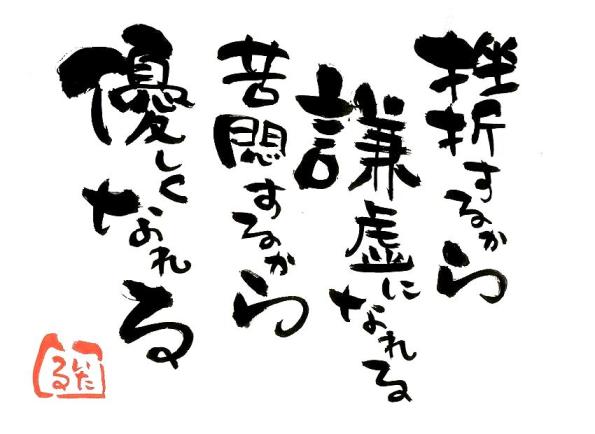 挫折するから
謙虚になれる
苦悶するから
優しくなれる